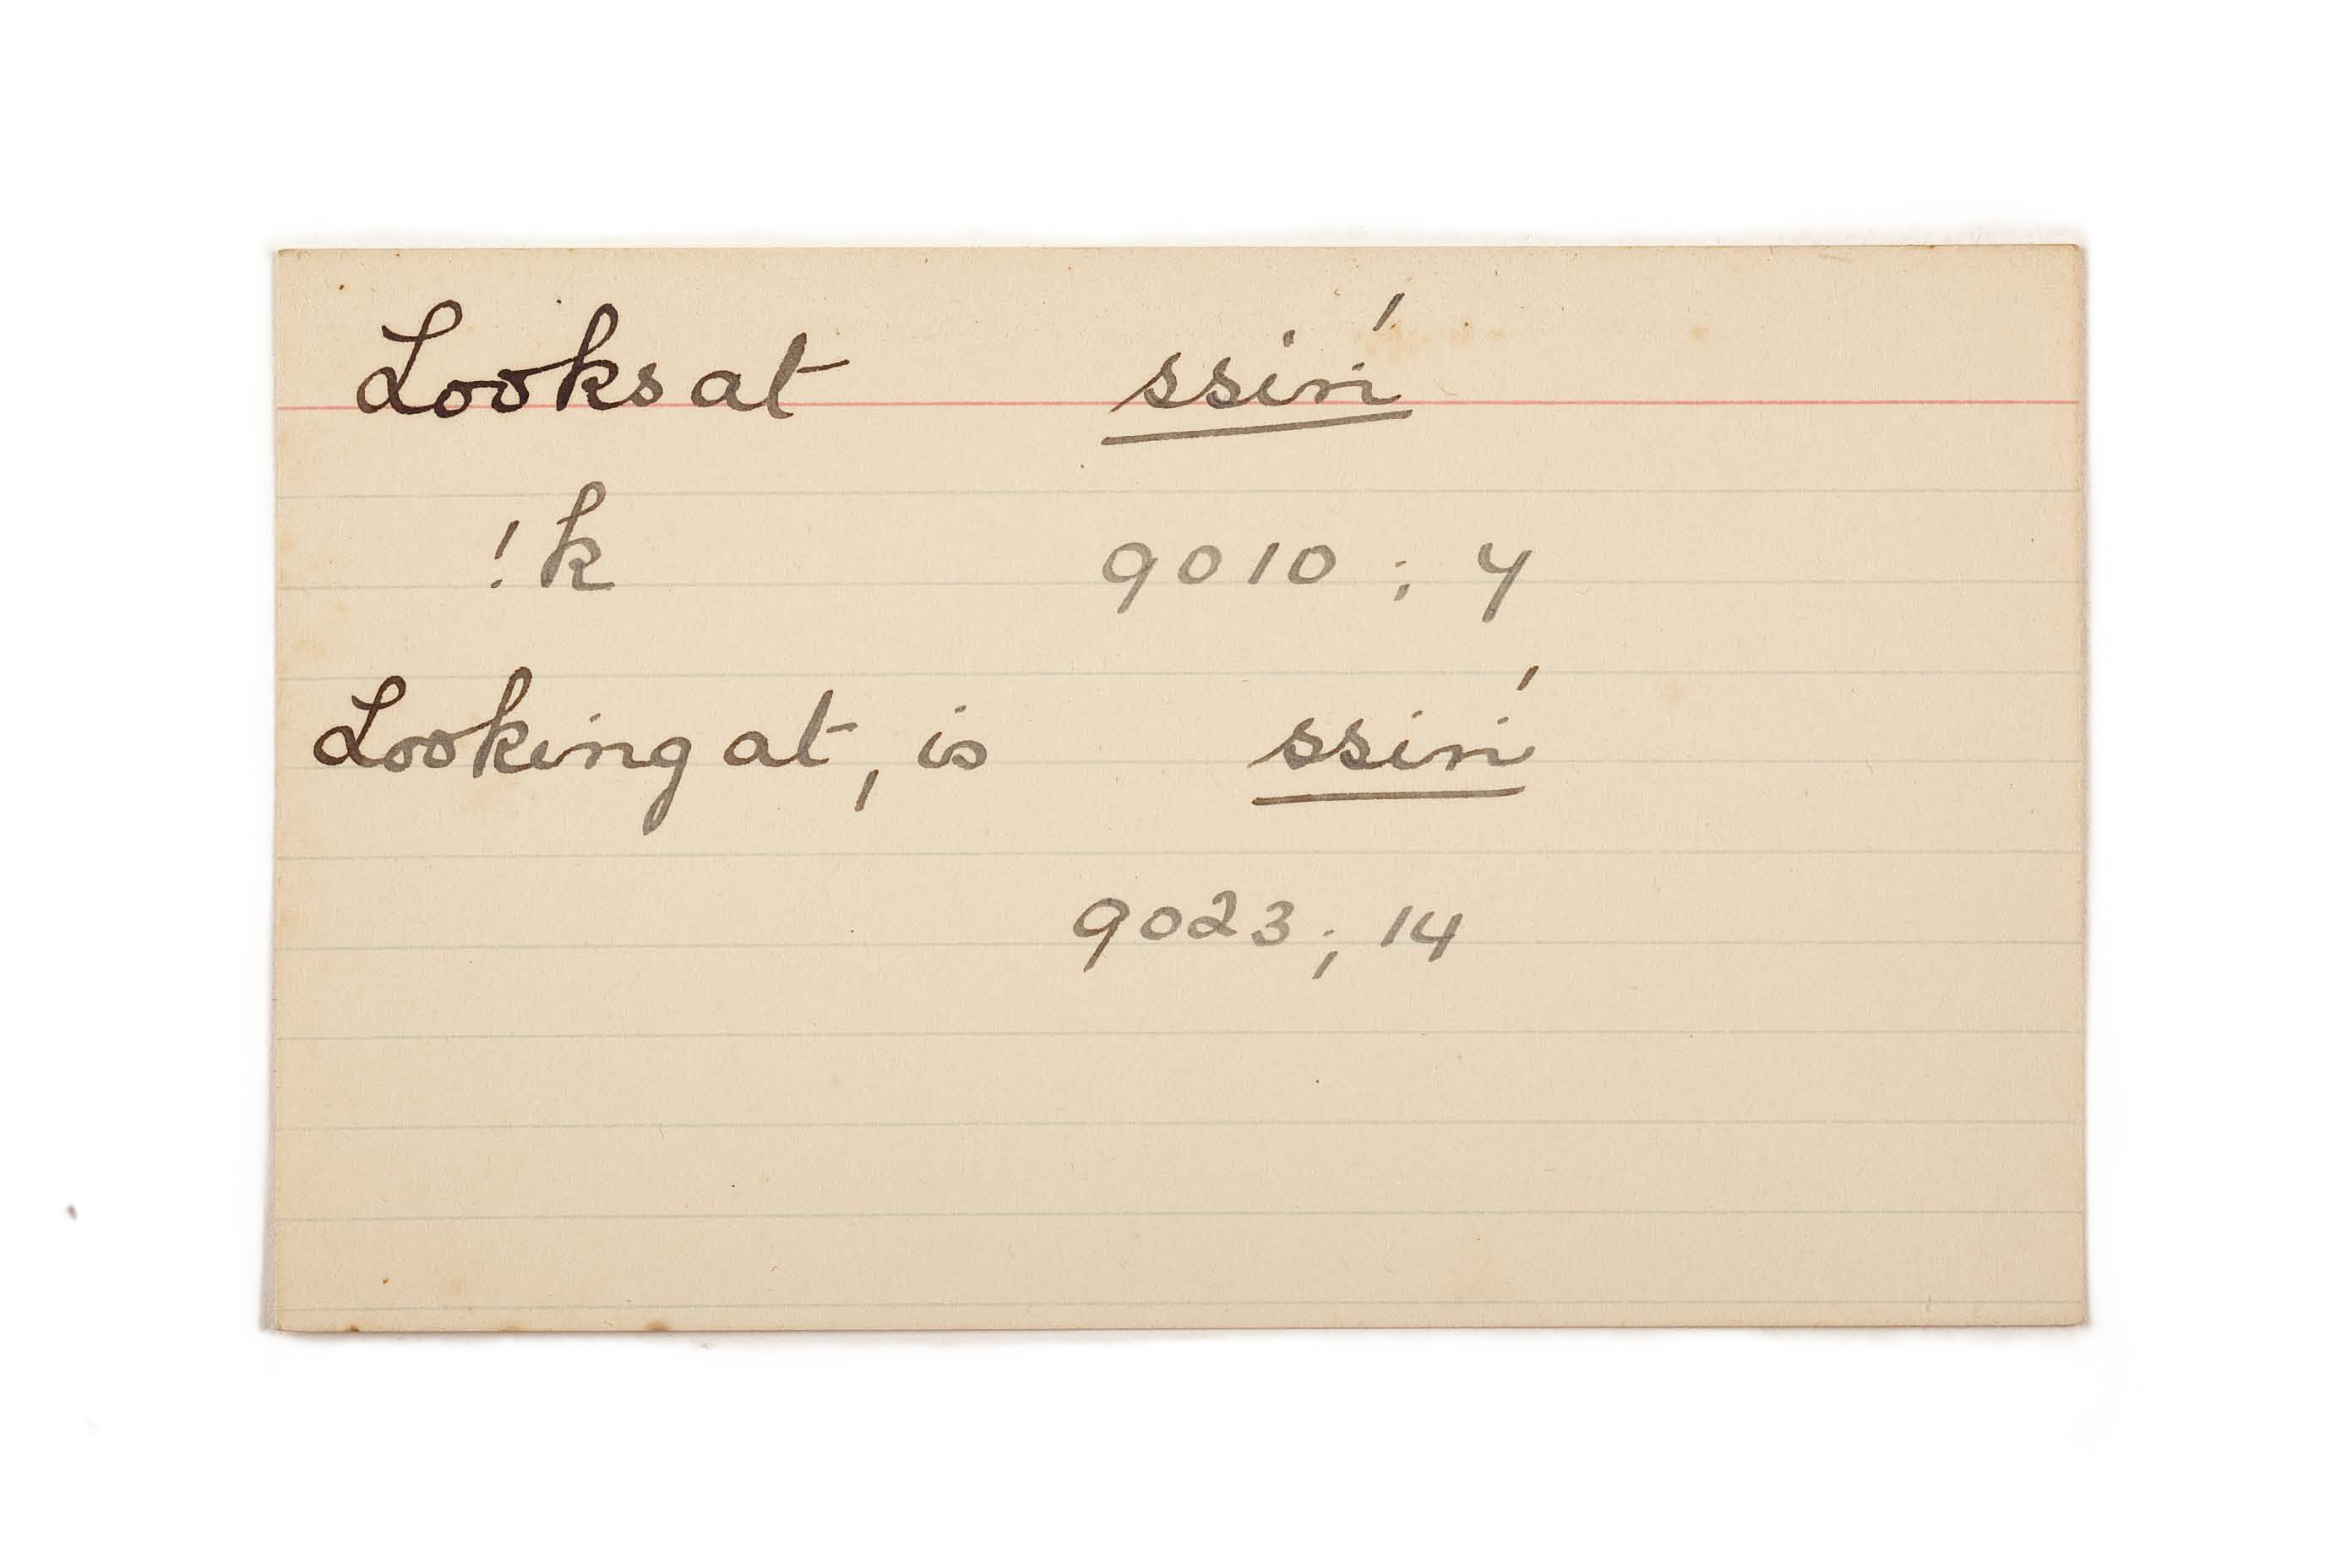 Looks at ssirí
!k 9010 ; 4
Looking at, is ssirí
9023 ; 14